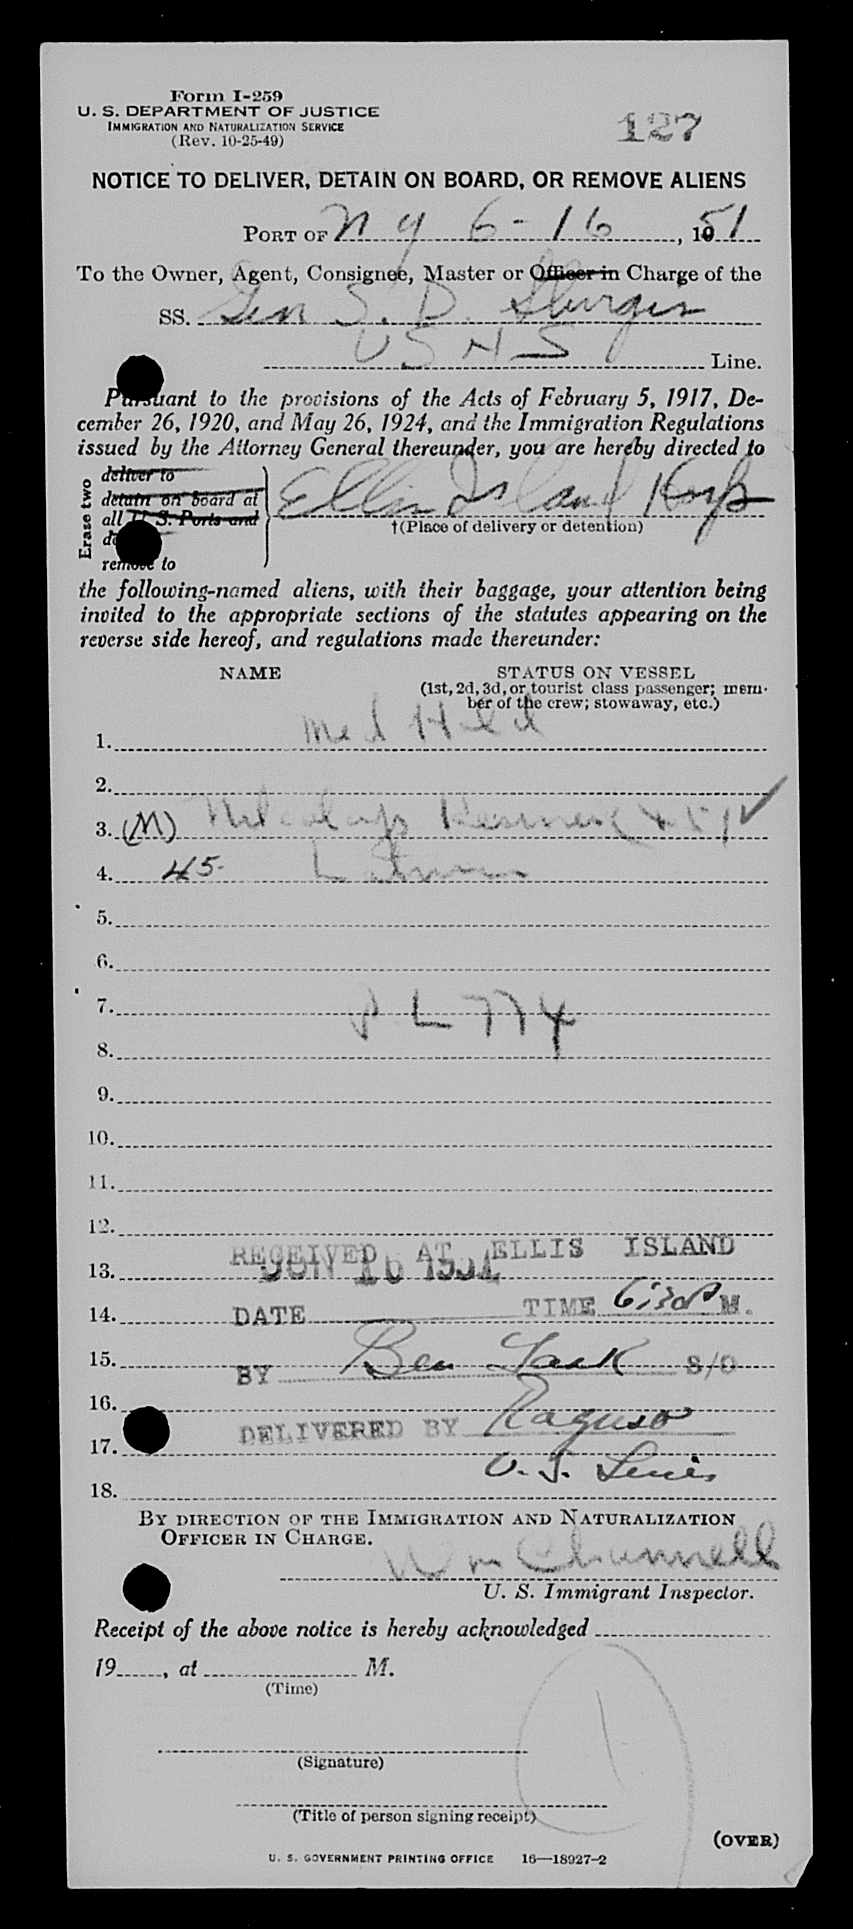 Form I-259
U. S. DEPARTMENT OF JUSTICE
IMMIGRATION AND NATURALIZATION SERVICE
(Rev. 10-25-49)
127
NOTICE TO DELIVER, DETAIN ON BOARD, OR REMOVE ALIENS
PORT OF N Y 6-16, 1951
To the Owner, Agent, Consignee, Master or Officer in Charge of the
SS. Gen S. D. Sturgis
USNS Line.
Pursuant to the provisions of the Acts of February 5, 1917, De-
cember 26, 1920, and May 26, 1924, and the Immigration Regulations
issued by the Attorney General thereunder, you are hereby directed to
Erase two
deliver to
detain on board at
all U. S. Ports and
remove to
Ellis Island Hosp
†(Place of delivery or detention)
the following-named aliens, with their baggage, your attention being
invited to the appropriate sections of the statutes appearing on the
reverse side hereof, and regulations made thereunder:
NAME STATUS ON VESSEL
(1st, 2d, 3d, or tourist class passenger; mem-
ber of the crew; stowaway, etc.)
1. Med Held
2.
3. (M)
4. 45
5.
6.
7. P L 774
8.
9.
10.
11.
12.
RECEIVED AT ELLIS ISLAND
13. JUN 16 1951
14. DATE TIME 6:30 P M.
15. BY Ben S/O
16.
DELIVERED BY Raguso
17.
18.
BY DIRECTION OF THE IMMIGRATION AND NATURALIZATION
OFFICER IN CHARGE.
Wm Chunnell
U. S. Immigrant Inspector.
Receipt of the above notice is hereby acknowledged
19, at M.
(Time)
(Signature)
(Title of person signing receipt)
(OVER)
U. S. GOVERNMENT PRINTING OFFICE 16—18927-2